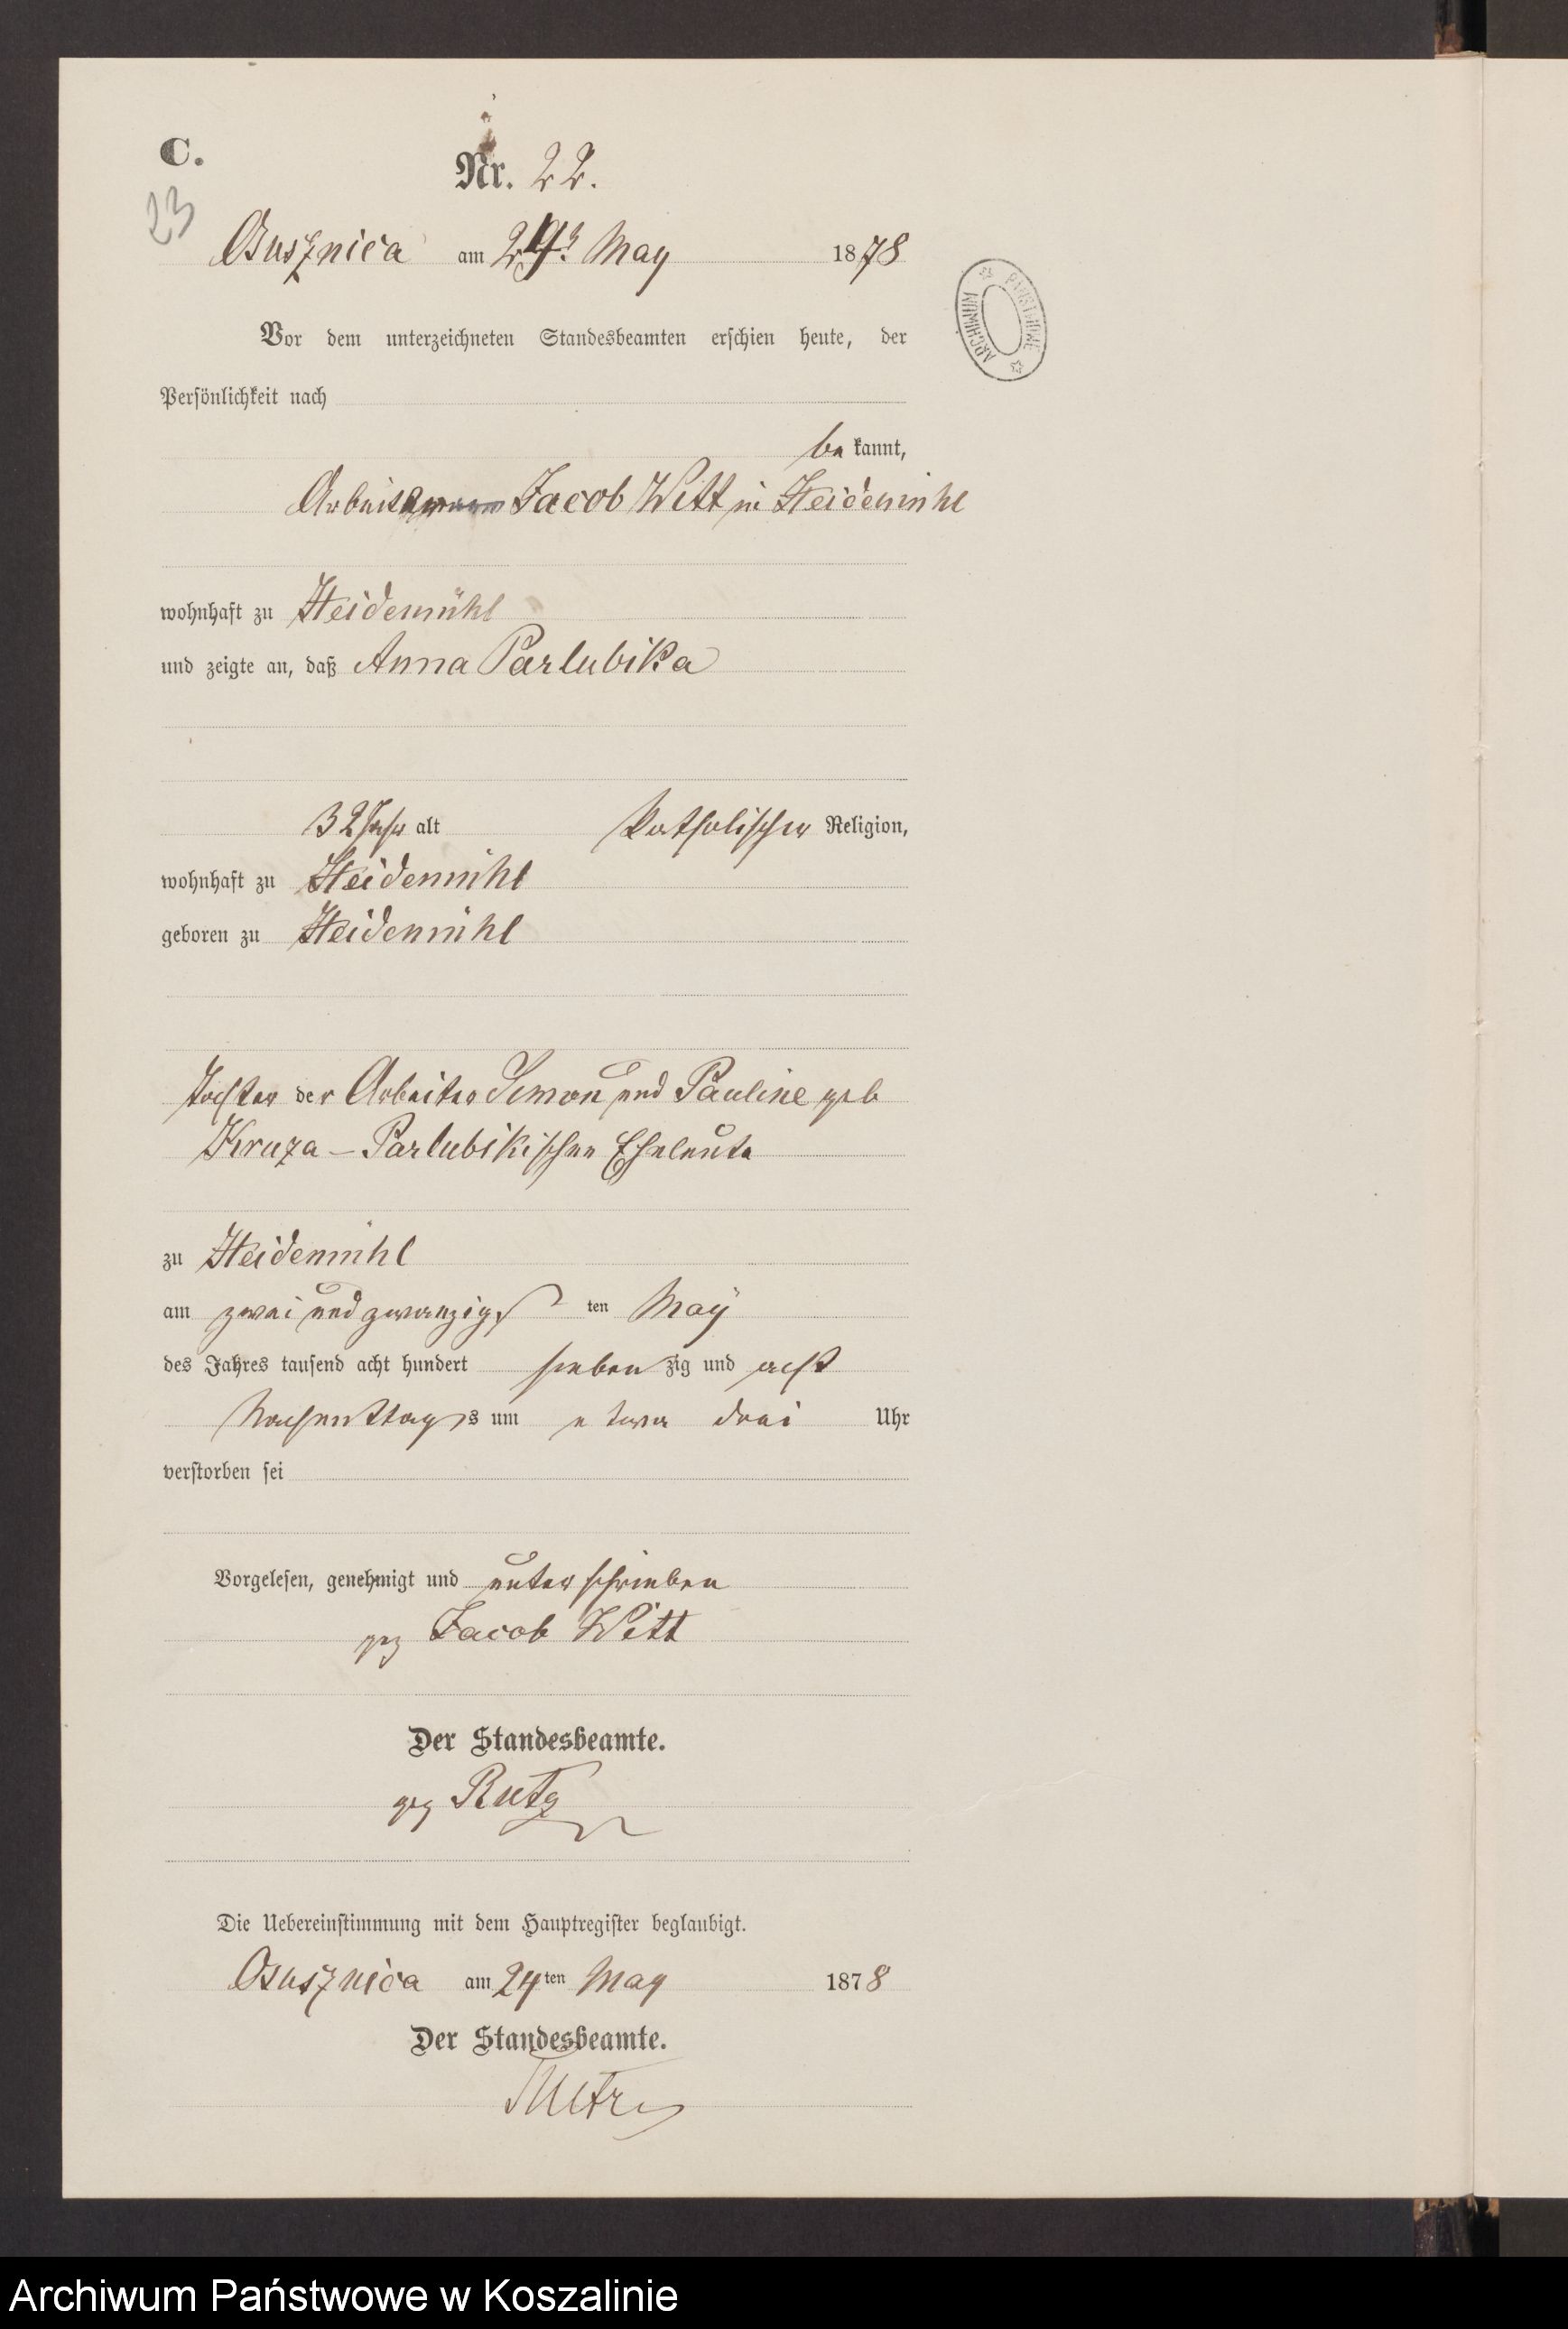 C.
Nr. 22.
23
Osusznica am 24. May 1878
Vor dem unterzeichneten Standesbeamten erschien heute, der
Persönlichkeit nach
be kannt,
Jacob Witt in Heidemühl
wohnhaft zu Heidemühl
und zeigte an, daß Anna Parlubika
32 Jahr alt katholischer Religion,
wohnhaft zu Heidemühl
geboren zu Heidemühl
Tochter der Arbeiter Simon und Pauline geb
Kruza – Parlubikischen Eheleute
zu Heidemühl
am zwei und zwanzigs ten May
des Jahres tausend acht hundert sieben zig und acht
Nachmittags um etwa drei Uhr
verstorben sei
Vorgelesen, genehmigt und unterschrieben
gez Jacob Witt
Der Standesbeamte.
gez Rutz
Die Uebereinstimmung mit dem Hauptregister beglaubigt.
Osusznica am 24ten May 1878
Der Standesbeamte.
ARCHIWUM PAŃSTWOWE
Archiwum Państwowe w Koszalinie